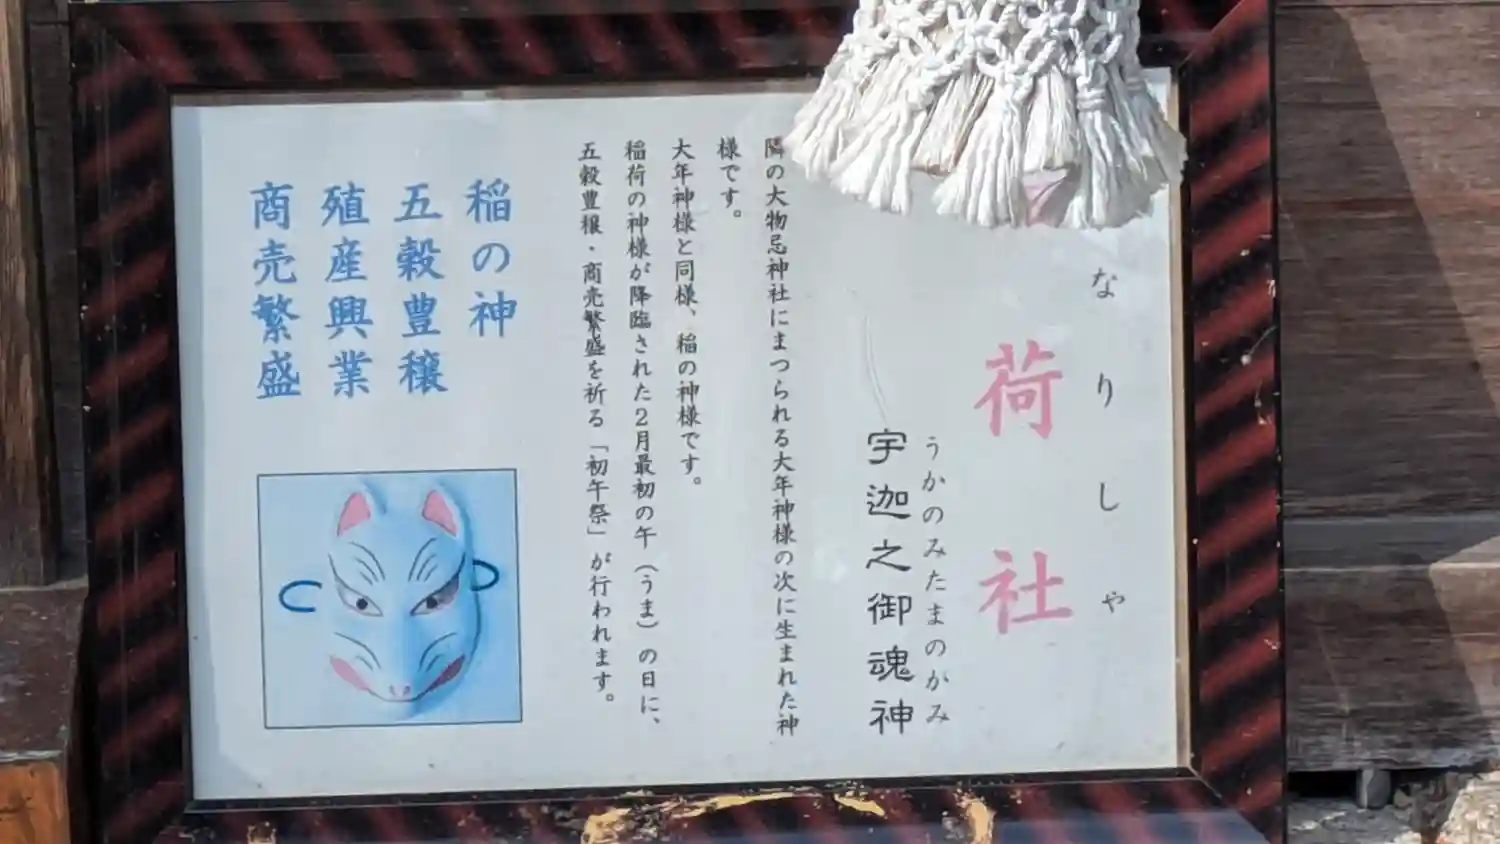 なりしゃ
荷社
うかのみたまのかみ
宇迦之御魂神
隣の大物忌神社にまつられる大年神様の次に生まれた神
様です。
大年神様と同様、稲の神様です。
稲荷の神様が降臨された2月最初の午（うま）の日に、
五穀豊穣・商売繁盛を祈る「初午祭」が行われます。
稲の神
五穀豊穣
殖産興業
商売繁盛